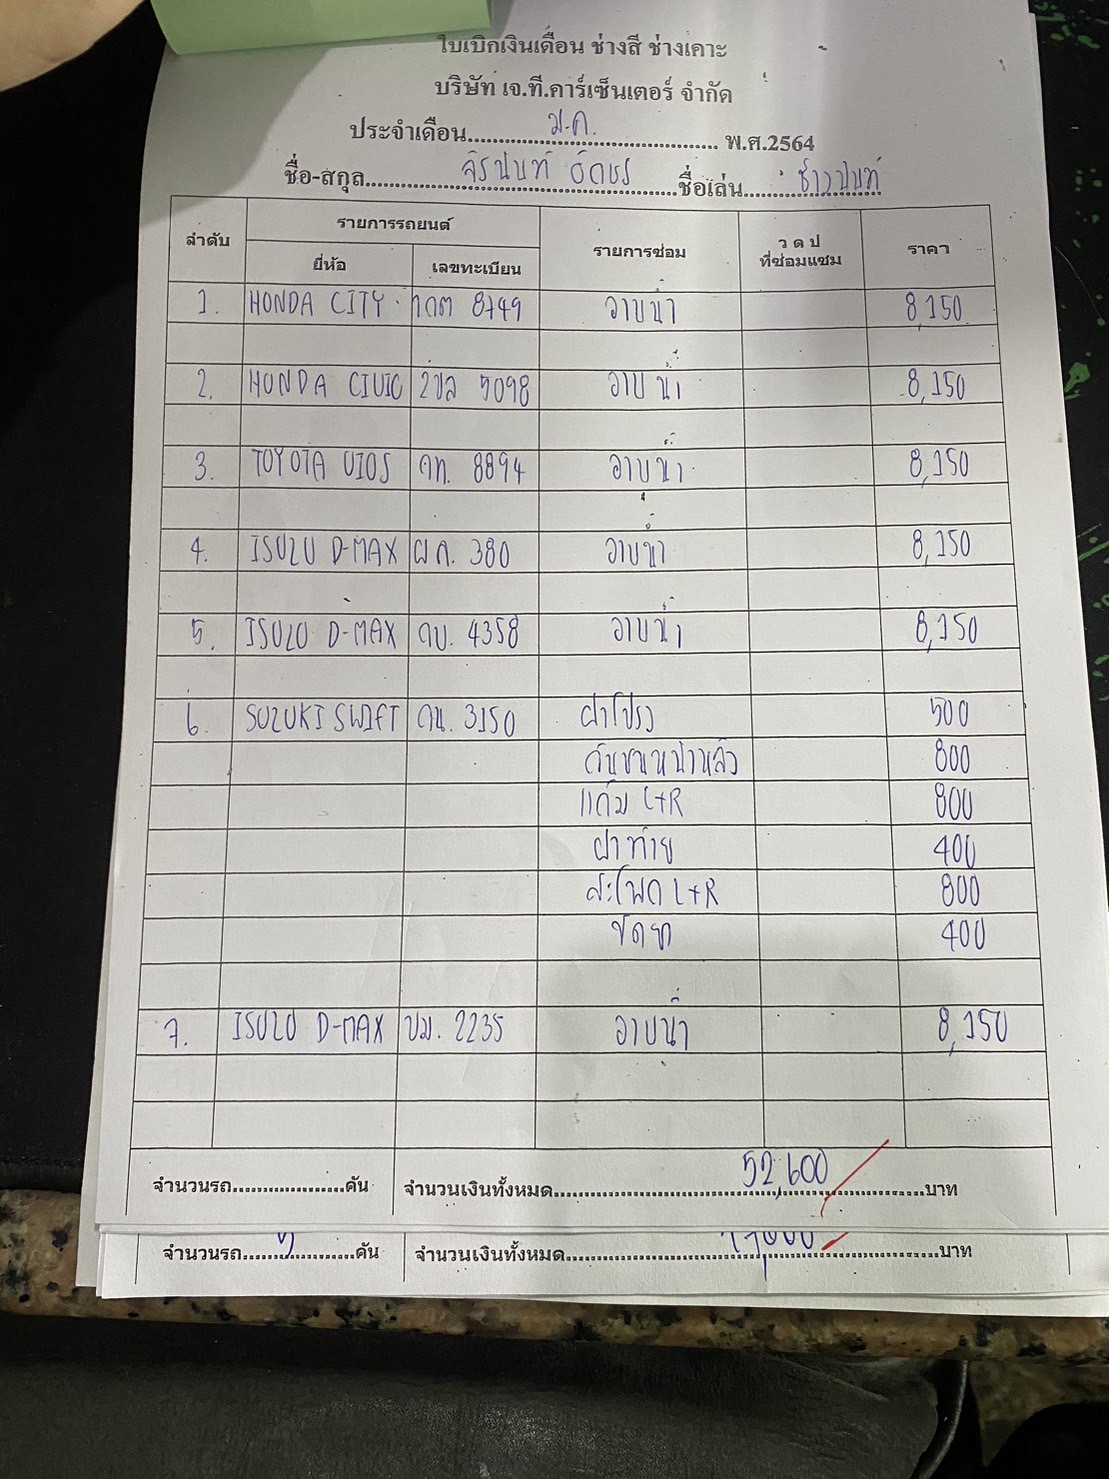 ใบเบิกเงินเดือน ช่างสี ช่างเคาะ
บริษัท เจ.ที.คาร์เซ็นเตอร์ จำกัด
ประจำเดือน ม.ค. พ.ศ.2564
ชื่อ-สกุล จิรนนท์ ชื่อเล่น
ลำดับ รายการรถยนต์ รายการซ่อม ว ด ป ที่ซ่อมแซม ราคา
ยี่ห้อ เลขทะเบียน
1. HONDA CITY 1กต 8749 อาบน้ำ 8,150
2. HONDA CIVIC 2ขล 5098 อาบน้ำ 8,150
3. TOYOTA VIOS กท. 8894 อาบน้ำ 8,150
4. ISUZU D-MAX ผก. 380 อาบน้ำ 8,150
5. ISUZU D-MAX กบ. 4358 อาบน้ำ 8,150
6. SUZUKI SWIFT กน. 3150 ฝาโปรง 500
กันชนหน้าหลัง 800
แก้ม L+R 800
ฝาท้าย 400
สะโพก L+R 800
ขัดยา 400
7. ISUZU D-MAX บม. 2235 อาบน้ำ 8,150
จำนวนรถ....................คัน จำนวนเงินทั้งหมด 52,600 บาท
จำนวนรถ....................คัน จำนวนเงินทั้งหมด....................บาท